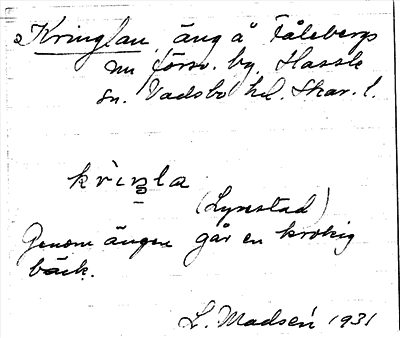 2 Kringlan, äng å Fåleberg
nu förs. by, Hassle
sn. Vadsbo hd. Skar. l.
krìŋla
(Lyrestad)
Genom ängen går en krokig
bäck.
L. Madsén 1931